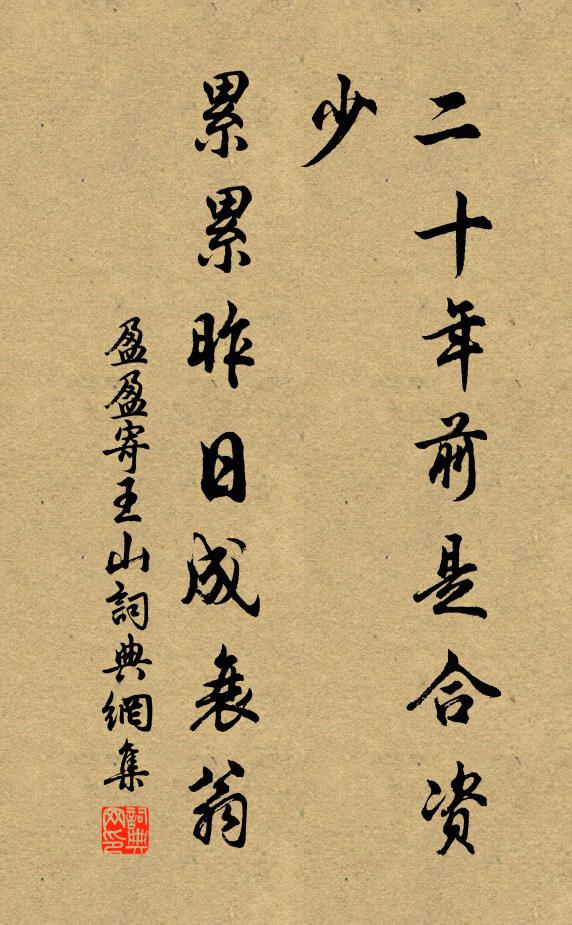 二十年前是合資
少
累累昨日成衰翁
盈盈寄王山詞典網集
詞典
网印